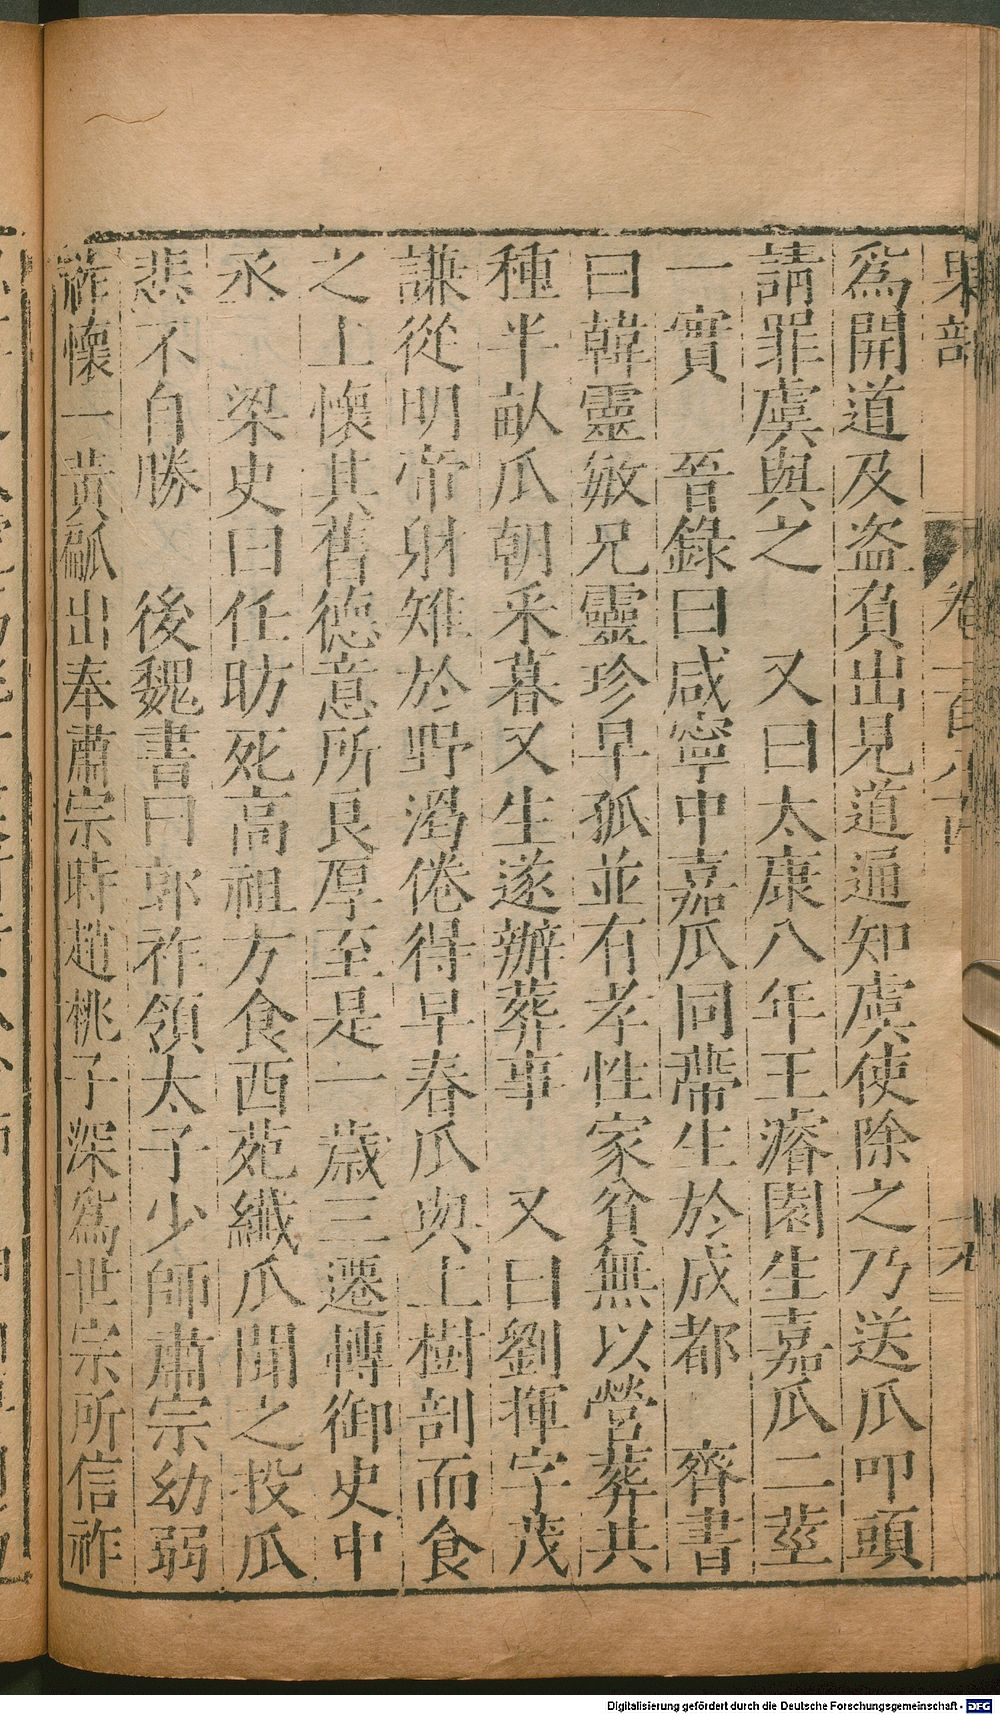 果部
卷一百八十
為開道及盗負出見道通知虞使除之乃送瓜叩頭
請罪虞與之　又曰太康八年王濬園生嘉瓜二莖
一實　晉錄曰咸寧中嘉瓜同蔕生於成都　齊書
曰韓靈敏兄靈珍早孤並有孝性家貧無以營葬共
種半畝瓜朝采暮又生遂辦葬事　又曰劉揮字茂
謙從明帝射雉於野渴倦得早春瓜與上樹剖而食
之上懷其舊德意所良厚至是一歲三遷轉御史中
丞　梁史曰任昉死高祖方食西苑纖瓜聞之投瓜
悲不自勝　後魏書曰郭祚領太子少師肅宗幼弱
祚懷一黃㼐出奉肅宗時趙桃子深為世宗所信祚
Digitalisierung gefördert durch die Deutsche Forschungsgemeinschaft - DFG